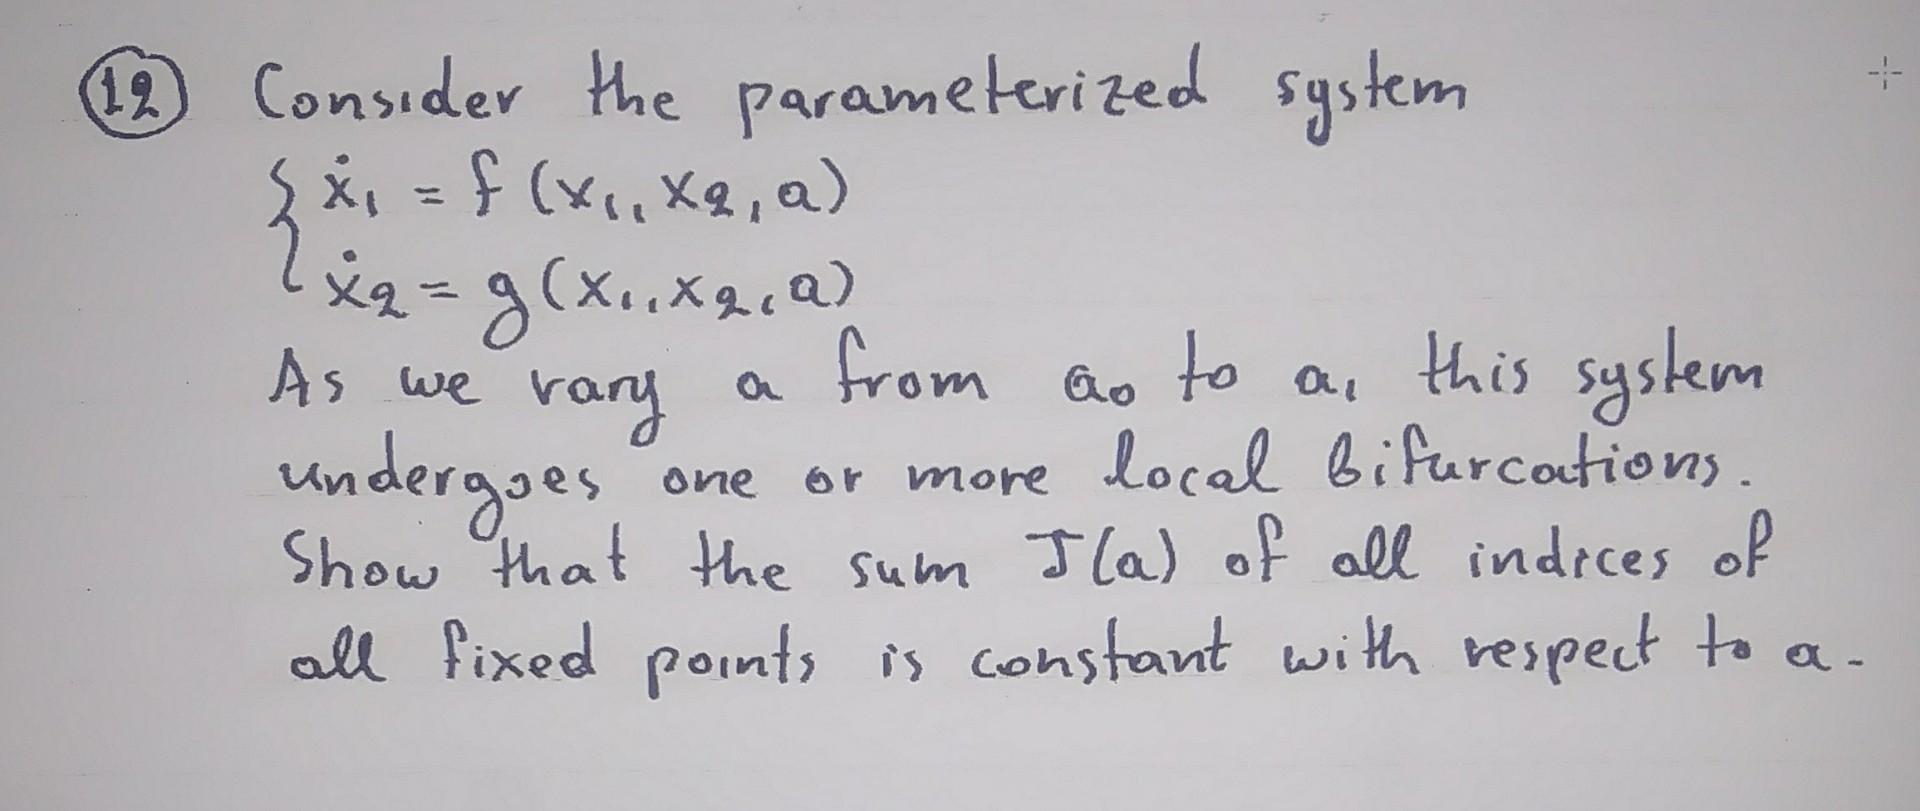 12 Consider the parameterized system
{ ẋ₁ = f (x₁, x₂, a)
ẋ₂ = g (x₁, x₂, a)
As we vary a from a₀ to a₁ this system
undergoes one or more local bifurcations.
Show that the sum J(a) of all indices of
all fixed points is constant with respect to a.